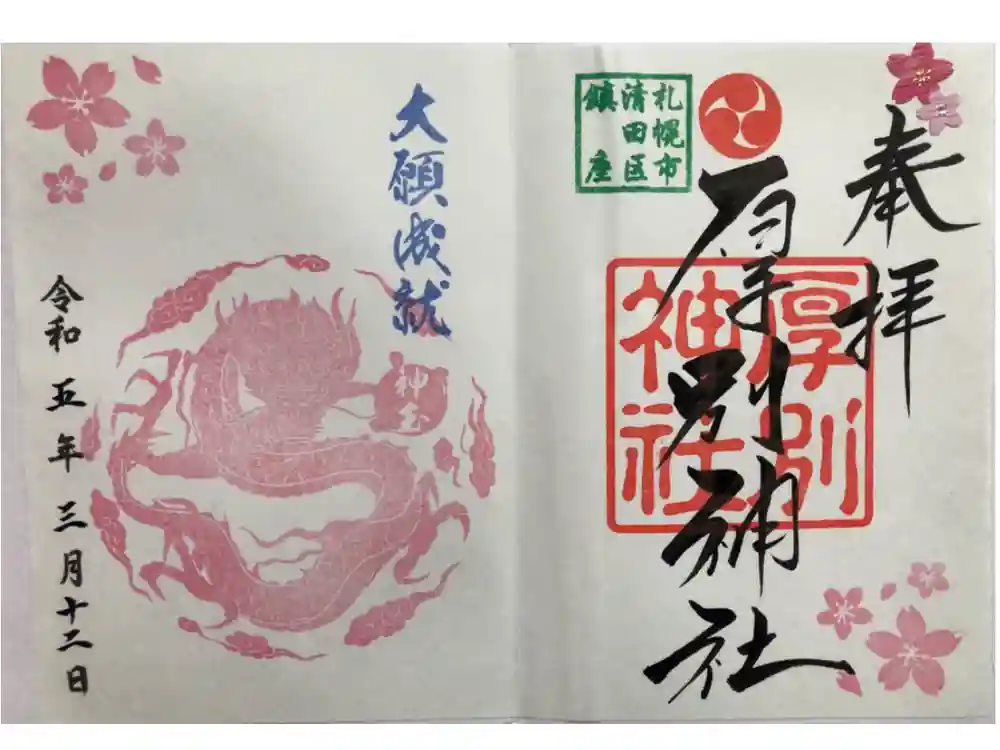 奉拝
厚別神社
厚別
神社
札幌市
清田区
鎮座
大願成就
神玉
令和五年三月十二日